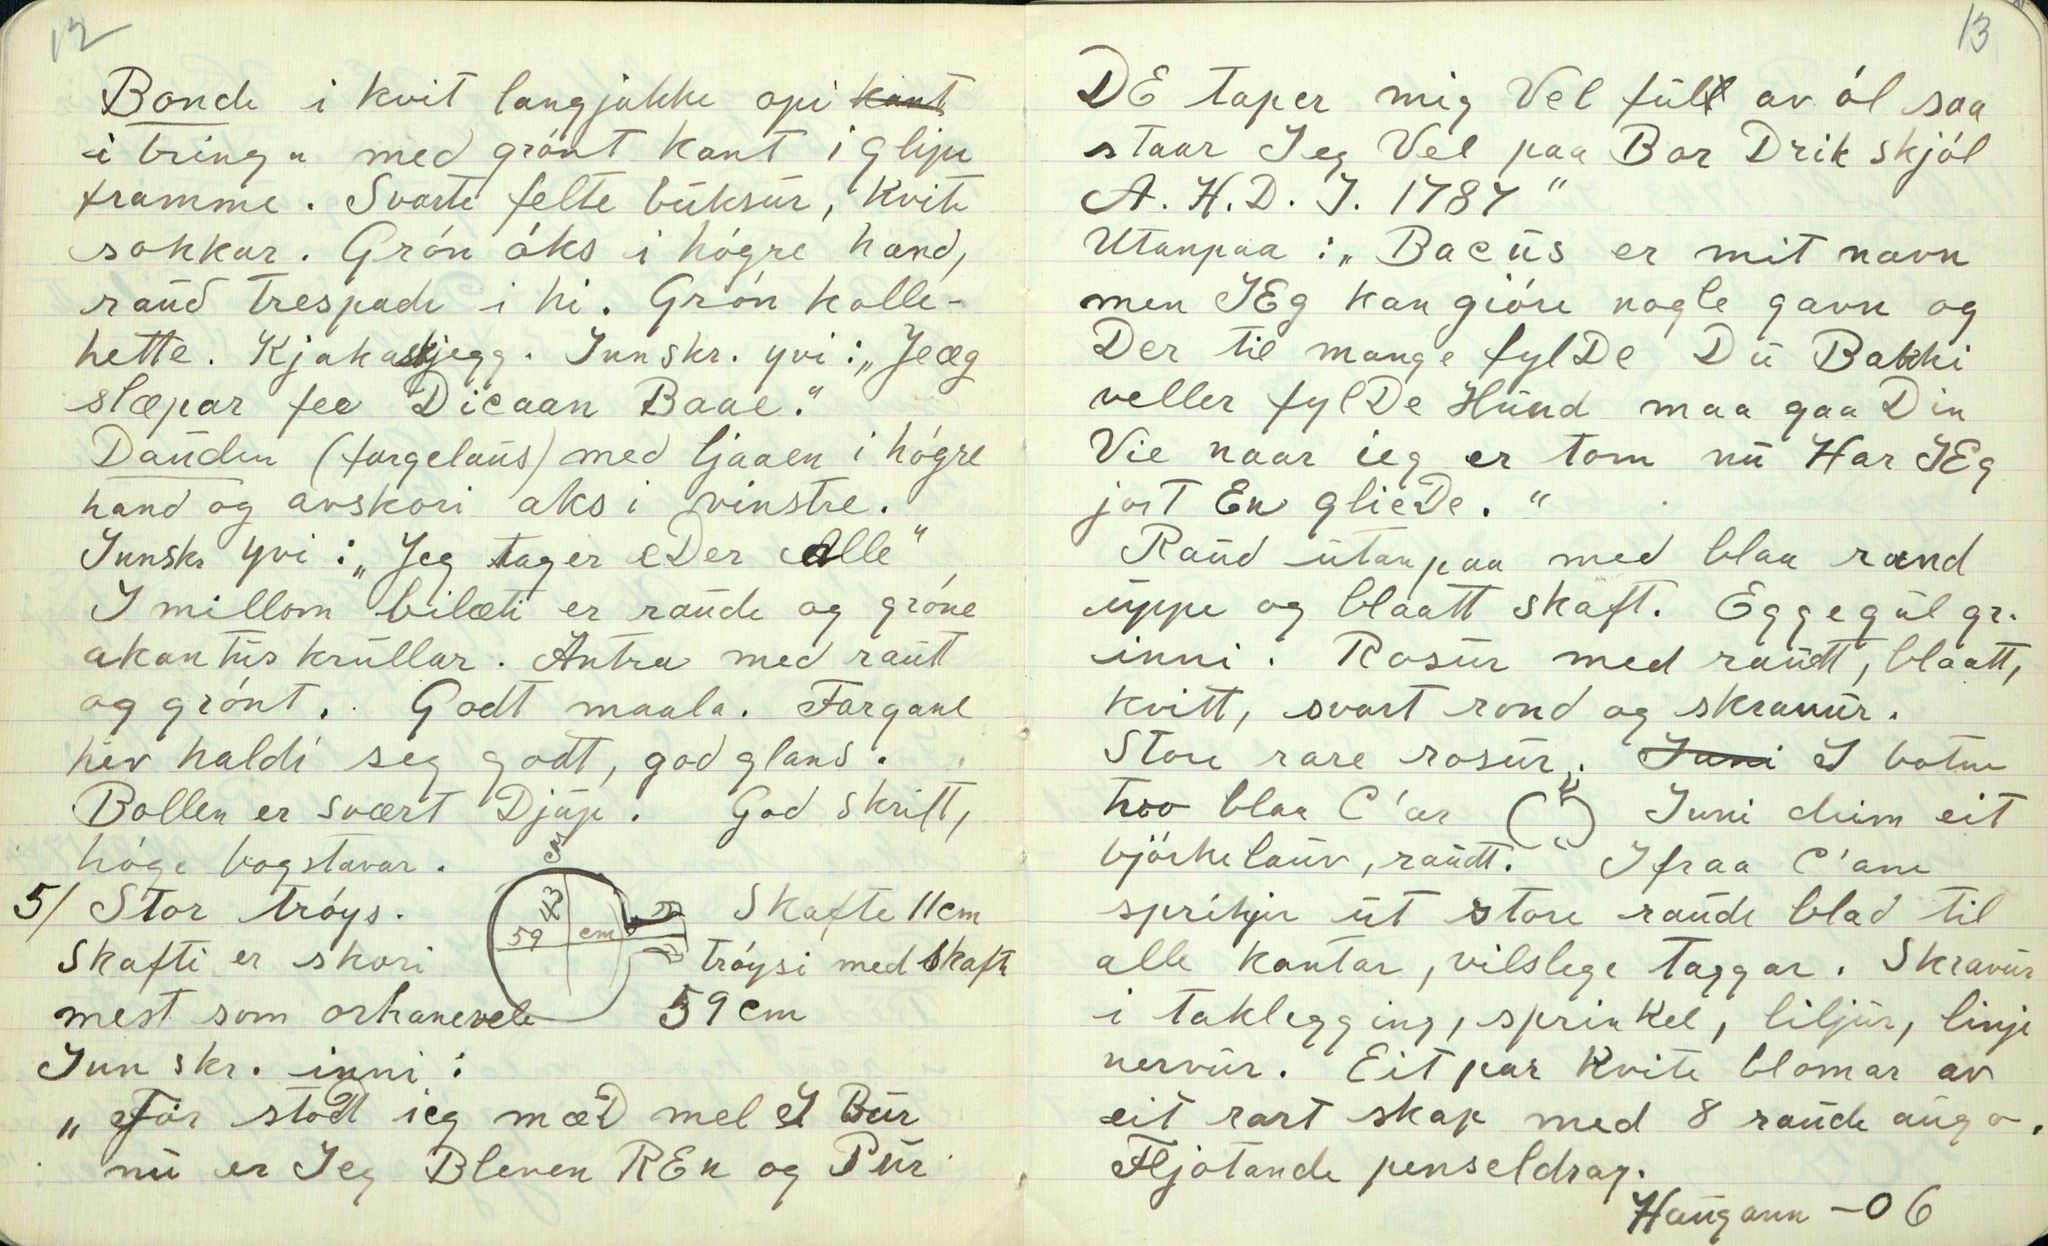 12
Bonde i kvit langjakke opi kant
i bringa med grónt kant i glipu
framme. Svarte felte búksúr, kvite
sokkar. Grón óks i hógre hand,
raúd trespade i hi. Grón kolle-
hette. Kjakaskjegg. Innskr. yvi: „Jeæg
slæpar fee Dicaan Baae."
Daúden (fargelaús) med ljaaen i hógre
hand og avskori aks i vinstre.
Innskr yvi: „Jeg tager eDer Alle"
I millom bilæti er raúde og gróne
akantúskrúllar. Antra med raút
og grónt. Godt maala. Fargane
hev haldi seg godt, god glans.
Bollen er svært Djúp. God skrift,
hóge bogstavar.
5/ Stor tróys.
cm
43
59 cm
Skafte 11 cm
Skafti er skori
tróysi med skaft
mest som orhanevele
59 cm
Innskr. inni:
„Fór stodt ieg mæD mel I Búr
nú er Jeg Bleven REn og Púr
13
DE taper mig Vel fúlt av ól saa
staar Jeg Vel paa Bor Drik skjól
A. H. D. J. 1787"
Utanpaa: „Bacús er mit navn
men JEg kan gióre nogle gavn og
Der til mange fylDe Dú Bakki
veller fylDe Húnd maa gaa Din
Vie naar ieg er tom nú Har JEg
jort En glieDe."
Raúd útanpaa med blaa rand
úppe og blaatt skaft. Eggegúl gr.
inni. Rosúr med raúdt, blaatt,
kvitt, svart rond og skravúr.
Store rare rosúr. Inni I botne
tvo blaa C'ar Inni deim eit
björkelaúv, raúdt. Ifraa C'ane
sprikjer út store raúde blad til
alle kantar, vilslege taggar. Skravúr
i taklegging, sprinkel, liljúr, linje
nervúr. Eit par kvite blomar av
eit rart skap med 8 raúde aúgo.
Fljotande penseldrag.
Haúgann -06